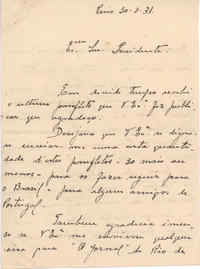 Paris 20-2-31
Ex.mo Snr. Presidente.
Em devido tempo recebi
o ultimo pamfleto que V. Ex.ª fez publi
car que agradeço.
Desejava que V. Ex.ª se dignas
se enviar-me uma certa quanti
dade d'estes pamfletos - 20 mais ou
menos - para os fazer seguir para
o Brasil e para alguns amigos de
Portugal.
Tambem agradecia imen
so se V. Ex.ª me enviasse qualquer
coisa para "O Jornal" do Rio de